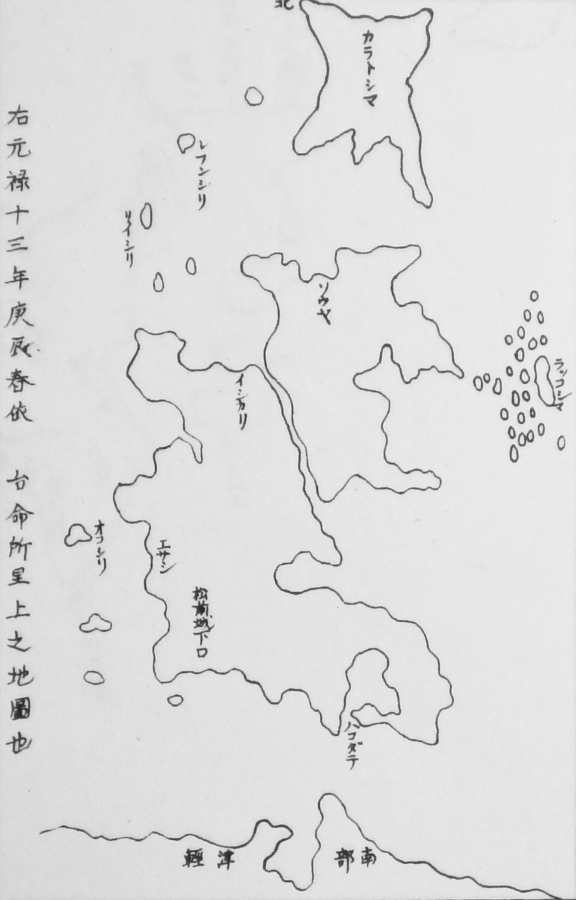 北
カラトシマ
レフンシリ
リイシリ
ソウヤ
ラッコシマ
イシカリ
オコシリ
エサシ
松前城下口
ハコダテ
津輕
南部
右元禄十三年庚辰春依 台命所呈上之地圖也